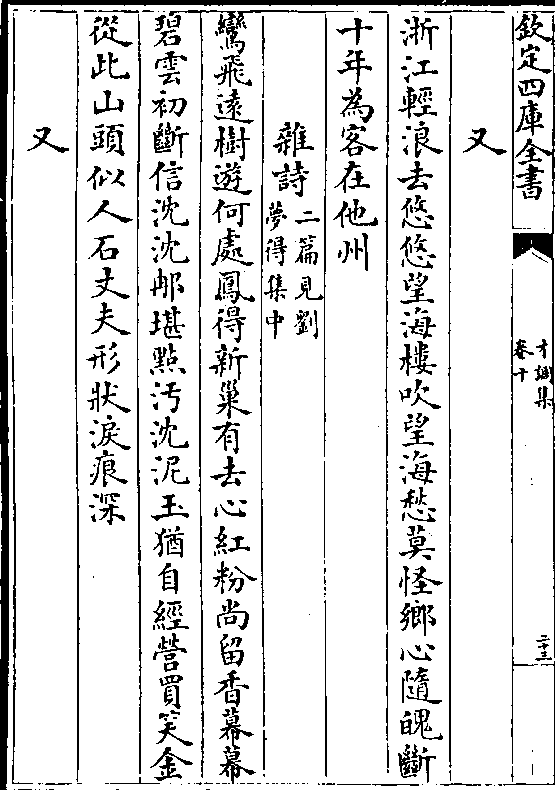 欽定四庫全書
才調集
卷十
二十三
又
浙江輕浪去悠悠望海樓吹望海愁莫怪鄉心隨魄斷
十年為客在他州
雜詩二篇見劉
夢得集中
鸞飛遠樹遊何處鳳得新巢有去心紅粉尚留香幕幕
碧雲初斷信沈沈𨚗堪點汚沈泥玉猶自經營買笑金
從此山頭似人石丈夫形狀淚痕深
又